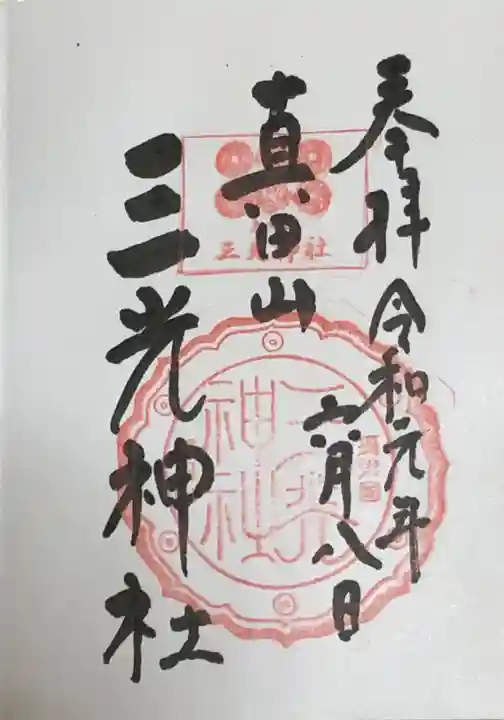 奉拝
令和元年
六月八日
真田山
三光神社
三光神社
三光
神社